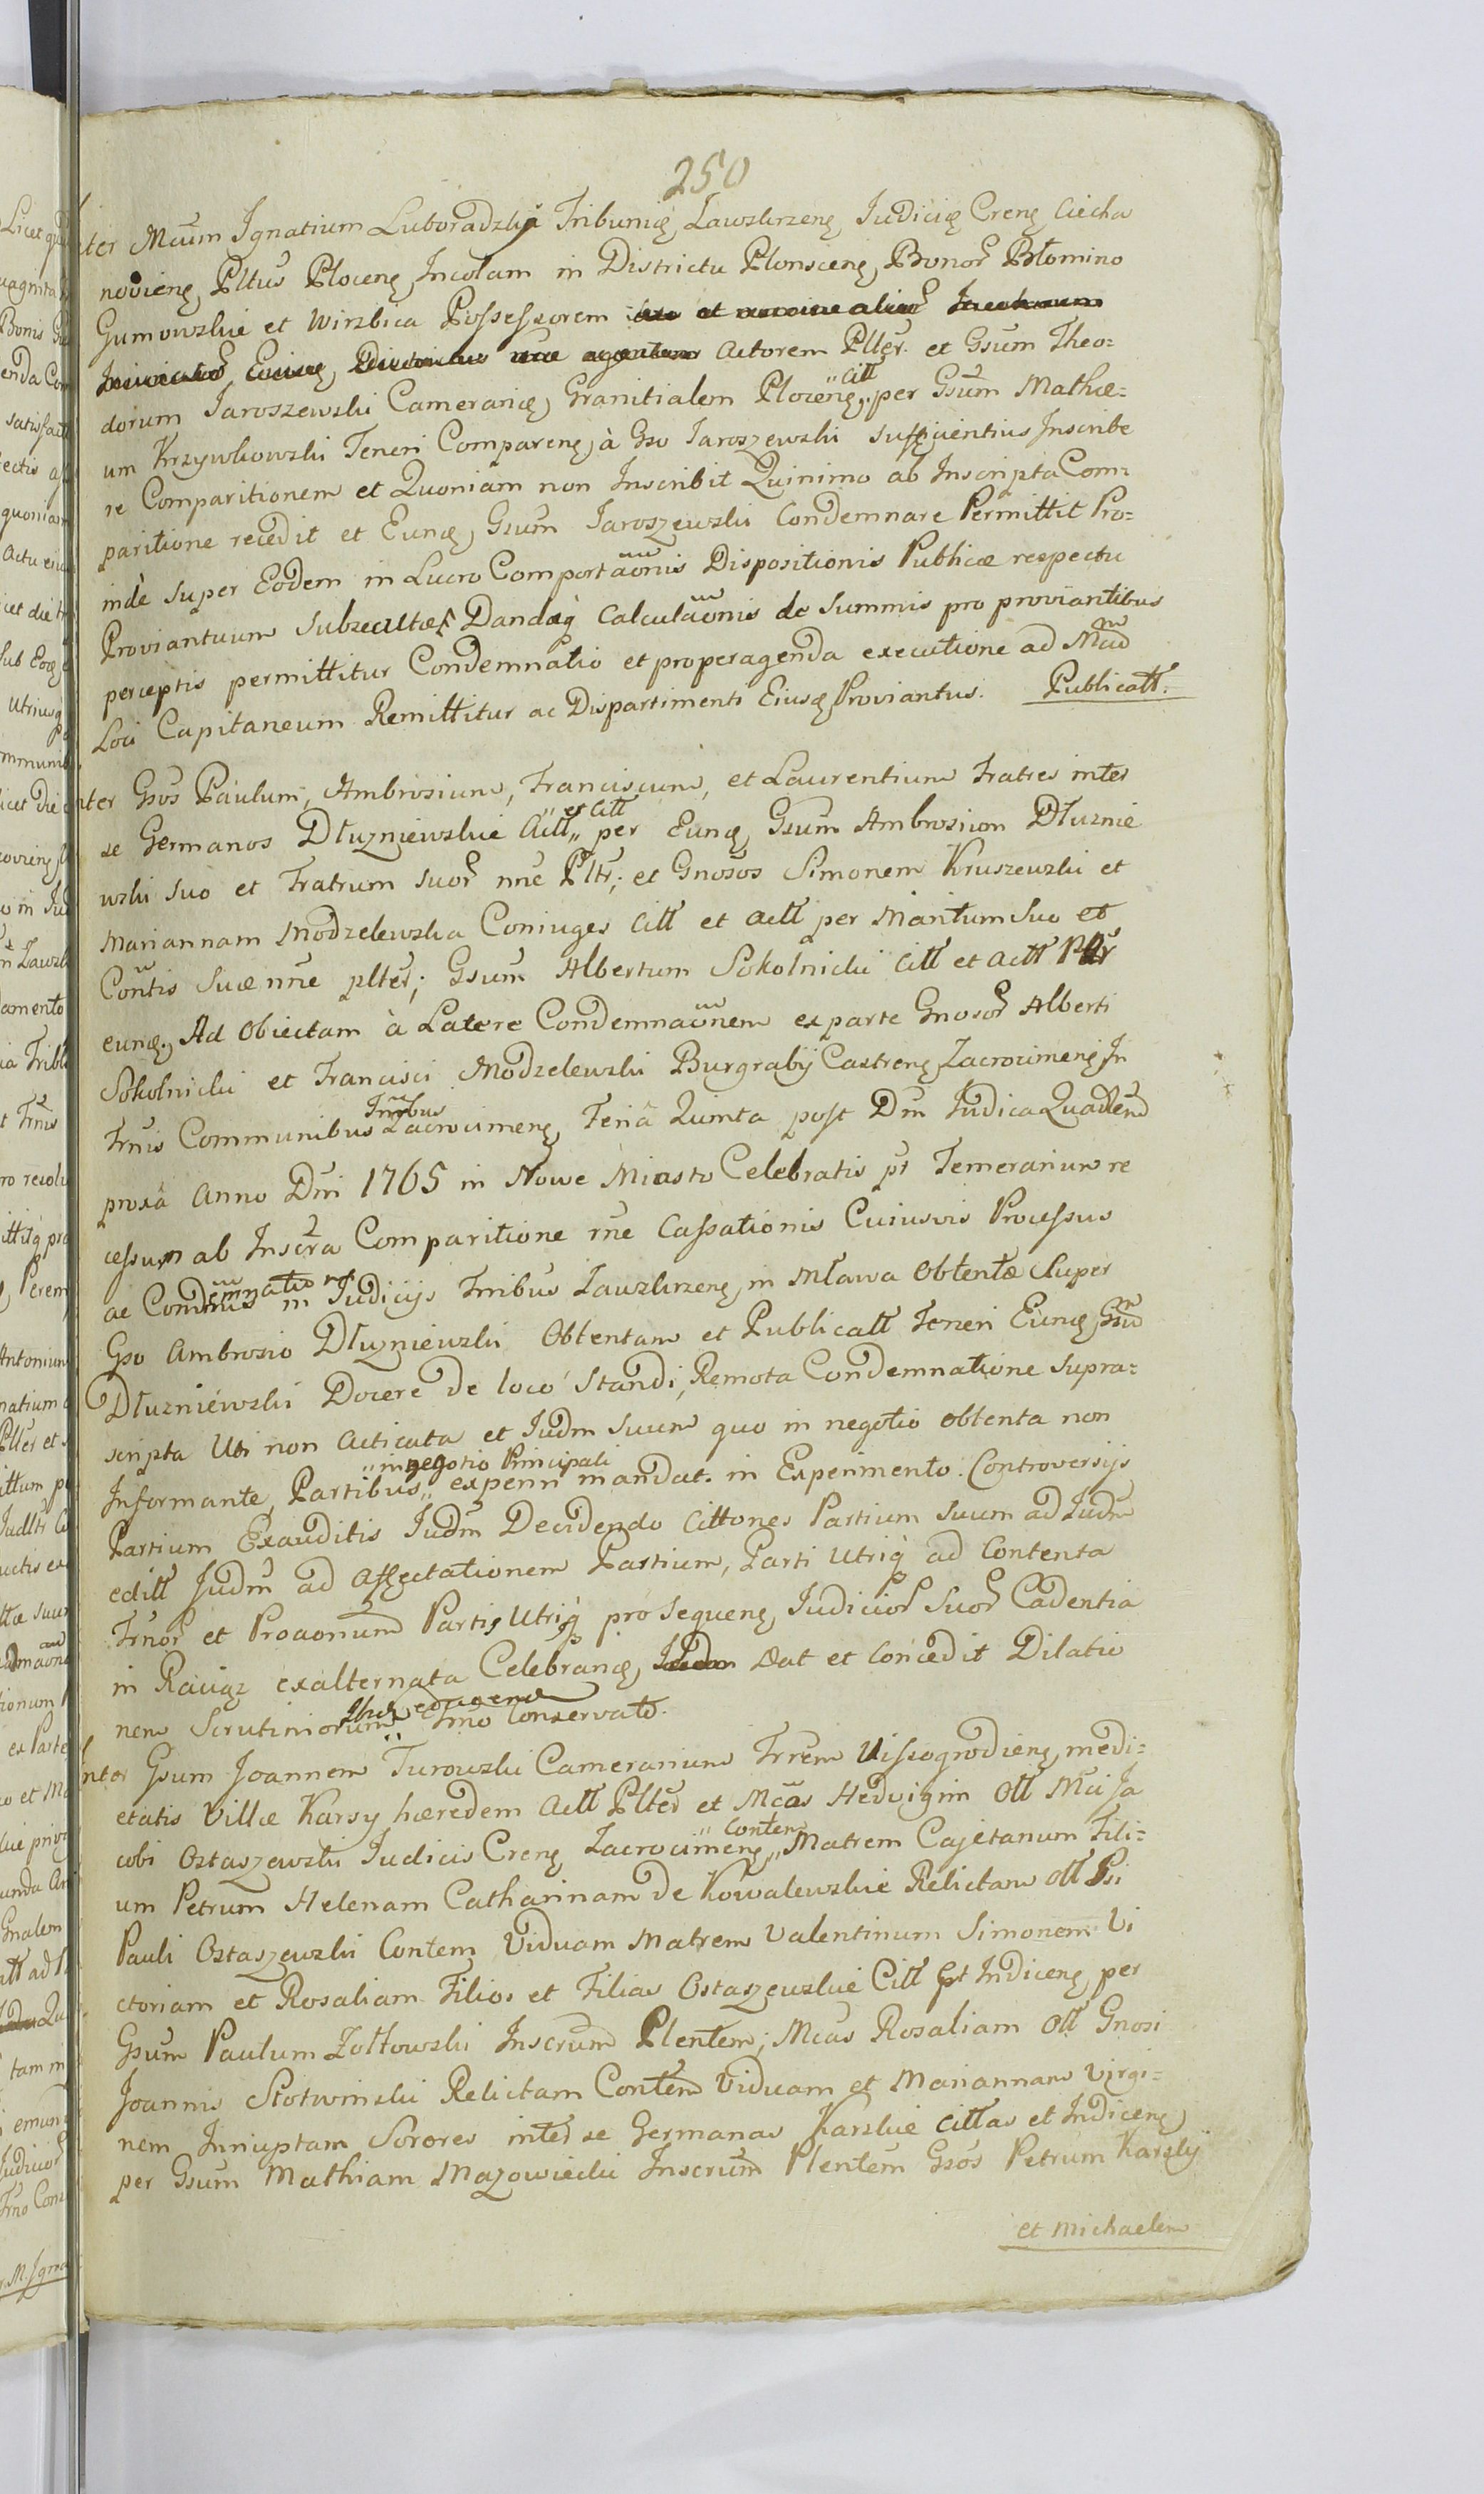 250
Inter Mcum Ignatium Luboradzki Tribunię Zawskrzenę Iudicię Crenę Ciecha
novienę Pltus Plocenę Incolam in Districtu Plonscenę Bonor Błomino
Gumowskie et Wirzbica Possessorem
Actorem Plter. et Gsum Theo-
dorum Jaroszewski Camerarię Granitialem Plocenę „Citt per Gsum Mathię-
um Krzywkowski Teneri Comparenę à Gso Jaroszewski sufficientius Inscribe
re Comparitionem et Quoniam non Inscribit Quinimo ab Inscripta Com-
paritione recedit et Eunę Gsum Jaroszewski Condemnare Permittit Pro-
inde super Eodem in Lucro Comportaonis Dispositionis Publicæ respectu
Proviantuum Subsecultæ Dandæq Calculaonis de Summis pro proviantibus
perceptis permittitur Condemnatio et pro peragenda executione ad Mcum
Loci Capitaneum Remittitur ac Dispartimenti Eiusę Proviantus. Publicatt.
Inter Gsos Paulum, Ambrosium, Franciscum, et Laurentium Fratres inter
se Germanos Dłuzniewskie Actt „et Citt per Eunę Gsum Ambrosium Dłuznie
wski suo et Fratrum suor nne Pltr; et Gnosos Simonem Kruszewski et
Mariannam Modzelewska Coniuges Citt et actt per Maritum Suo et
Contis Suæ nne plter; Gsum Albertum Sokolnicki Citt et actt Pltr
eunę. Ad Obiectam à Latere Condemnaonem ex parte Gnosor Alberti
Sokolnicki et Francisci Modzelewski Burgrabij Castrenę Zacrocimenę In
Trnis Communibus Trribus Zacrocimenę Feria Quinta post Dm Iudica Quadlem
proxa Anno Dni 1765 in Nowe Miasto Celebratis pt Temerarium re
cessum ab Inscra Comparitione rne Cassationis Cuiusvis Processus
ac Condemnationis in Iudicijs Trribus Zawskrzenę in Mława Obtentæ Super
Gso Ambrosio Dłuzniewski Obtentam et Publicatt Teneri Eunę Gsum
Dłuzniewski Docere de loco Standi, Remota Condemnatione Supra-
scripta Uti non acticata et Iudm suum quo in negotio obtenta non
Informante, Partibus „in negotio Principali experiri mandat. in Experimento. Controversijs
Partium Exauditis Iudm Decidendo Cittones Partium Suum ad Iudm
editt Judm ad affectationem Partium, Parti Utriq ad Contenta
Trnor et Proaonum Partis Utriq pro Sequenę Iudicior Suor Cadentia
in Raciąz exalternata Celebranę Dat et Concedit Dilatio
nem Scrutiniorum Ibidę educend Trno Conservato.
Inter Gsum Joannem Turowski Camerarium Trrem Wissogrodienę medi-
etatis Villæ Karsy hæredem Actt Plter et Mcas Hedvigim Ott Mci Ja
cobi Ostaszewski Iudicis Crenę Zacrocimenę „Contem Matrem Cajetanum Fili-
um Petrum Helenam Catharinam de Kowalewskie Relictam Ott Gsi
Pauli Ostaszewski Contem Viduam Matrem Valentinum Simonem Vi
ctoriam et Rosaliam Filios et Filias Ostaszewskie Citt et Indicenę per
Gsum Paulum Zołtowski Inscrum Plentem; Mcas Rosaliam Ott Gnosi
Joannis Słotwinski Relictam Contem Viduam et Mariannam Virgi-
nem Innuptam Sorores inter se Germanas Karskie Cittas et Indicenę
per Gsum Mathiam Mazowiecki Inscrum Plentem Gsos Petrum Karsky
et Michaelem